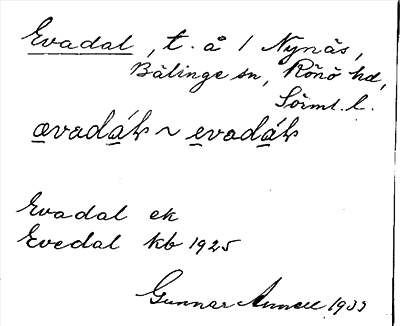 Evadal, t. å / Nynäs,
Bälinge sn, Rönö hd,
Sörml. l.
avadáɫ ~ evadáɫ
Evadal ek
Evedal kb 1925
Gunnar 1933